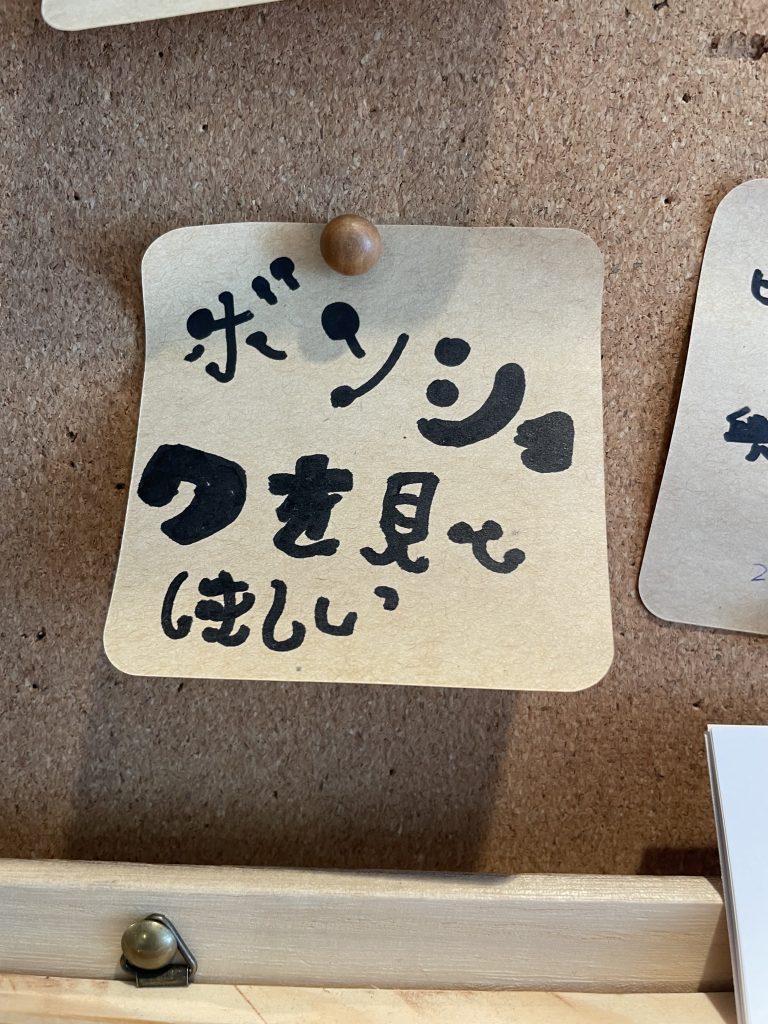 ボンショ
クを見て
ほしい
2